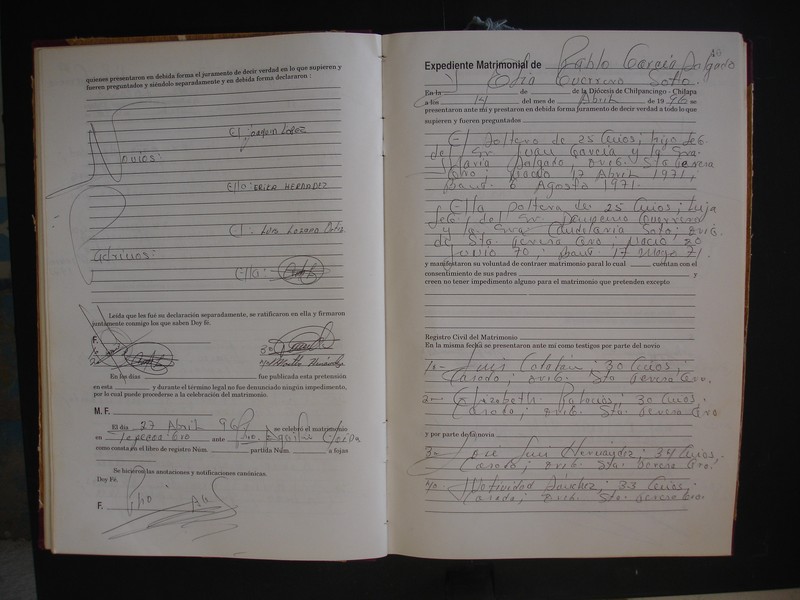 quienes presentaron en debida forma el juramento de decir verdad en lo que supieren y
fueren preguntados y siéndolo separadamente y en debida forma declararon :
El Joaquin Lopez
Novios:
Ella: ERICA HERNANDEZ
El: Luis Lozano Ortiz
Padrinos:
Ella:
Leída que les fué su declaración separadamente, se ratificaron en ella y firmaron
juntamente conmigo los que saben Doy fé.
F.
1o
2o
3o
4o
En los días fue publicada esta pretensión
en esta y durante el término legal no fue denunciado ningún impedimento,
por lo cual puede procederse a la celebración del matrimonio.
M. F.
El día 27 Abril 96 se celebró el matrimonio
en Tepecoa Gro ante Pbro. Aquiles
como consta en el libro de registro Núm. partida Núm. a fojas
Se hicieron las anotaciones y notificaciones canónicas.
Doy Fé.
F.
Expediente Matrimonial de Pablo García Salgado
y Ofa Guerrero Soto.
En la de de la Diócesis de Chilpancingo - Chilapa
a los 14 del mes de Abril de 1996 se
presentaron ante mí y prestaron en debida forma juramento de decir verdad a todo lo que
supieren y fueren preguntados
El Soltero de 25 años; hijo leg.
del Sr. Juan García y la Sra.
María Salgado orig. Sta Teresa
Gro; nacio 17 Abril 1971,
baut. 6 Agosto 1971.
Ella soltera de 25 años; hija
leg; del Sr. Guerrero
y la Sra. Candelaria Soto; orig.
de Sta. Teresa Gro; nacio 20
Junio 70; baut. 17 Mayo 71.
y manifestaron su voluntad de contraer matrimonio para lo cual cuentan con el
consentimiento de sus padres y
creen no tener impedimento alguno para el matrimonio que pretenden excepto
Registro Civil del Matrimonio
En la misma fecha se presentaron ante mí como testigos por parte del novio
1o- Luis Catalán; 30 años;
Casado; orig. Sta Teresa Gro.
2o- Elizabeth Palacios; 30 años.
Casada; orig. Sta. Teresa Gro
y por parte de la novia
3o- Jose Luis Hernandez; 34 años.
Casado; orig. Sta. Teresa Gro.
4o- Natividad Sánchez; 33 años;
Casada; orig. Sta. Teresa Gro.